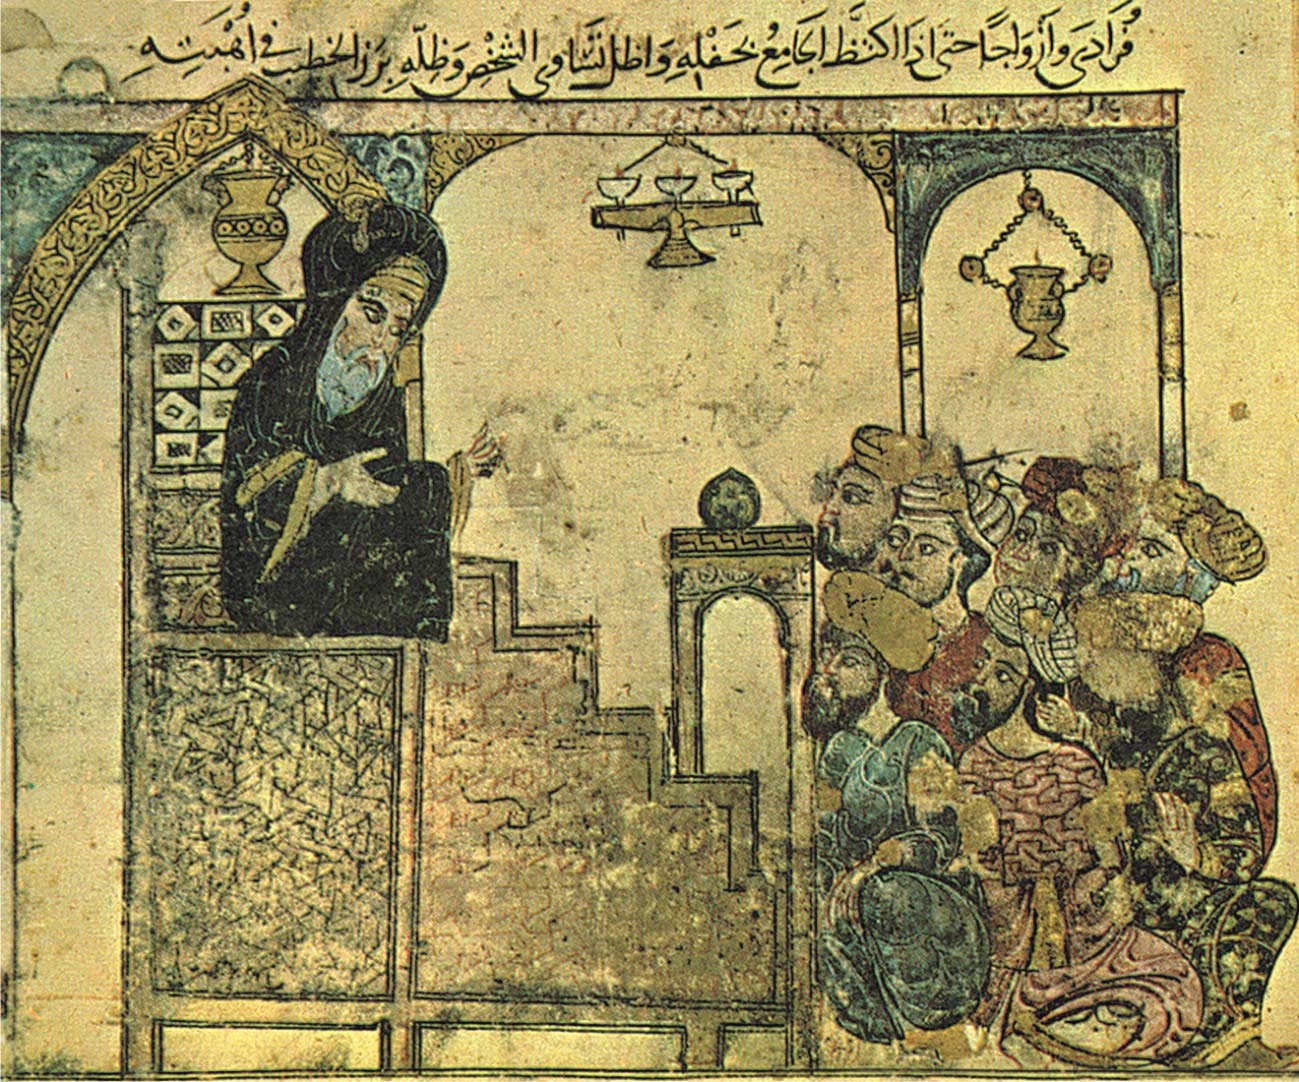 فُرَادَى وَأَزْوَاجًا حتى اذا اكتظَّ الجَامِعُ بحَفْلِهِ وَاظل تَسَاوِى الشخْصِ وَظِلّهِ بَرَزَ الخطيب في أُهْبَتِهِ